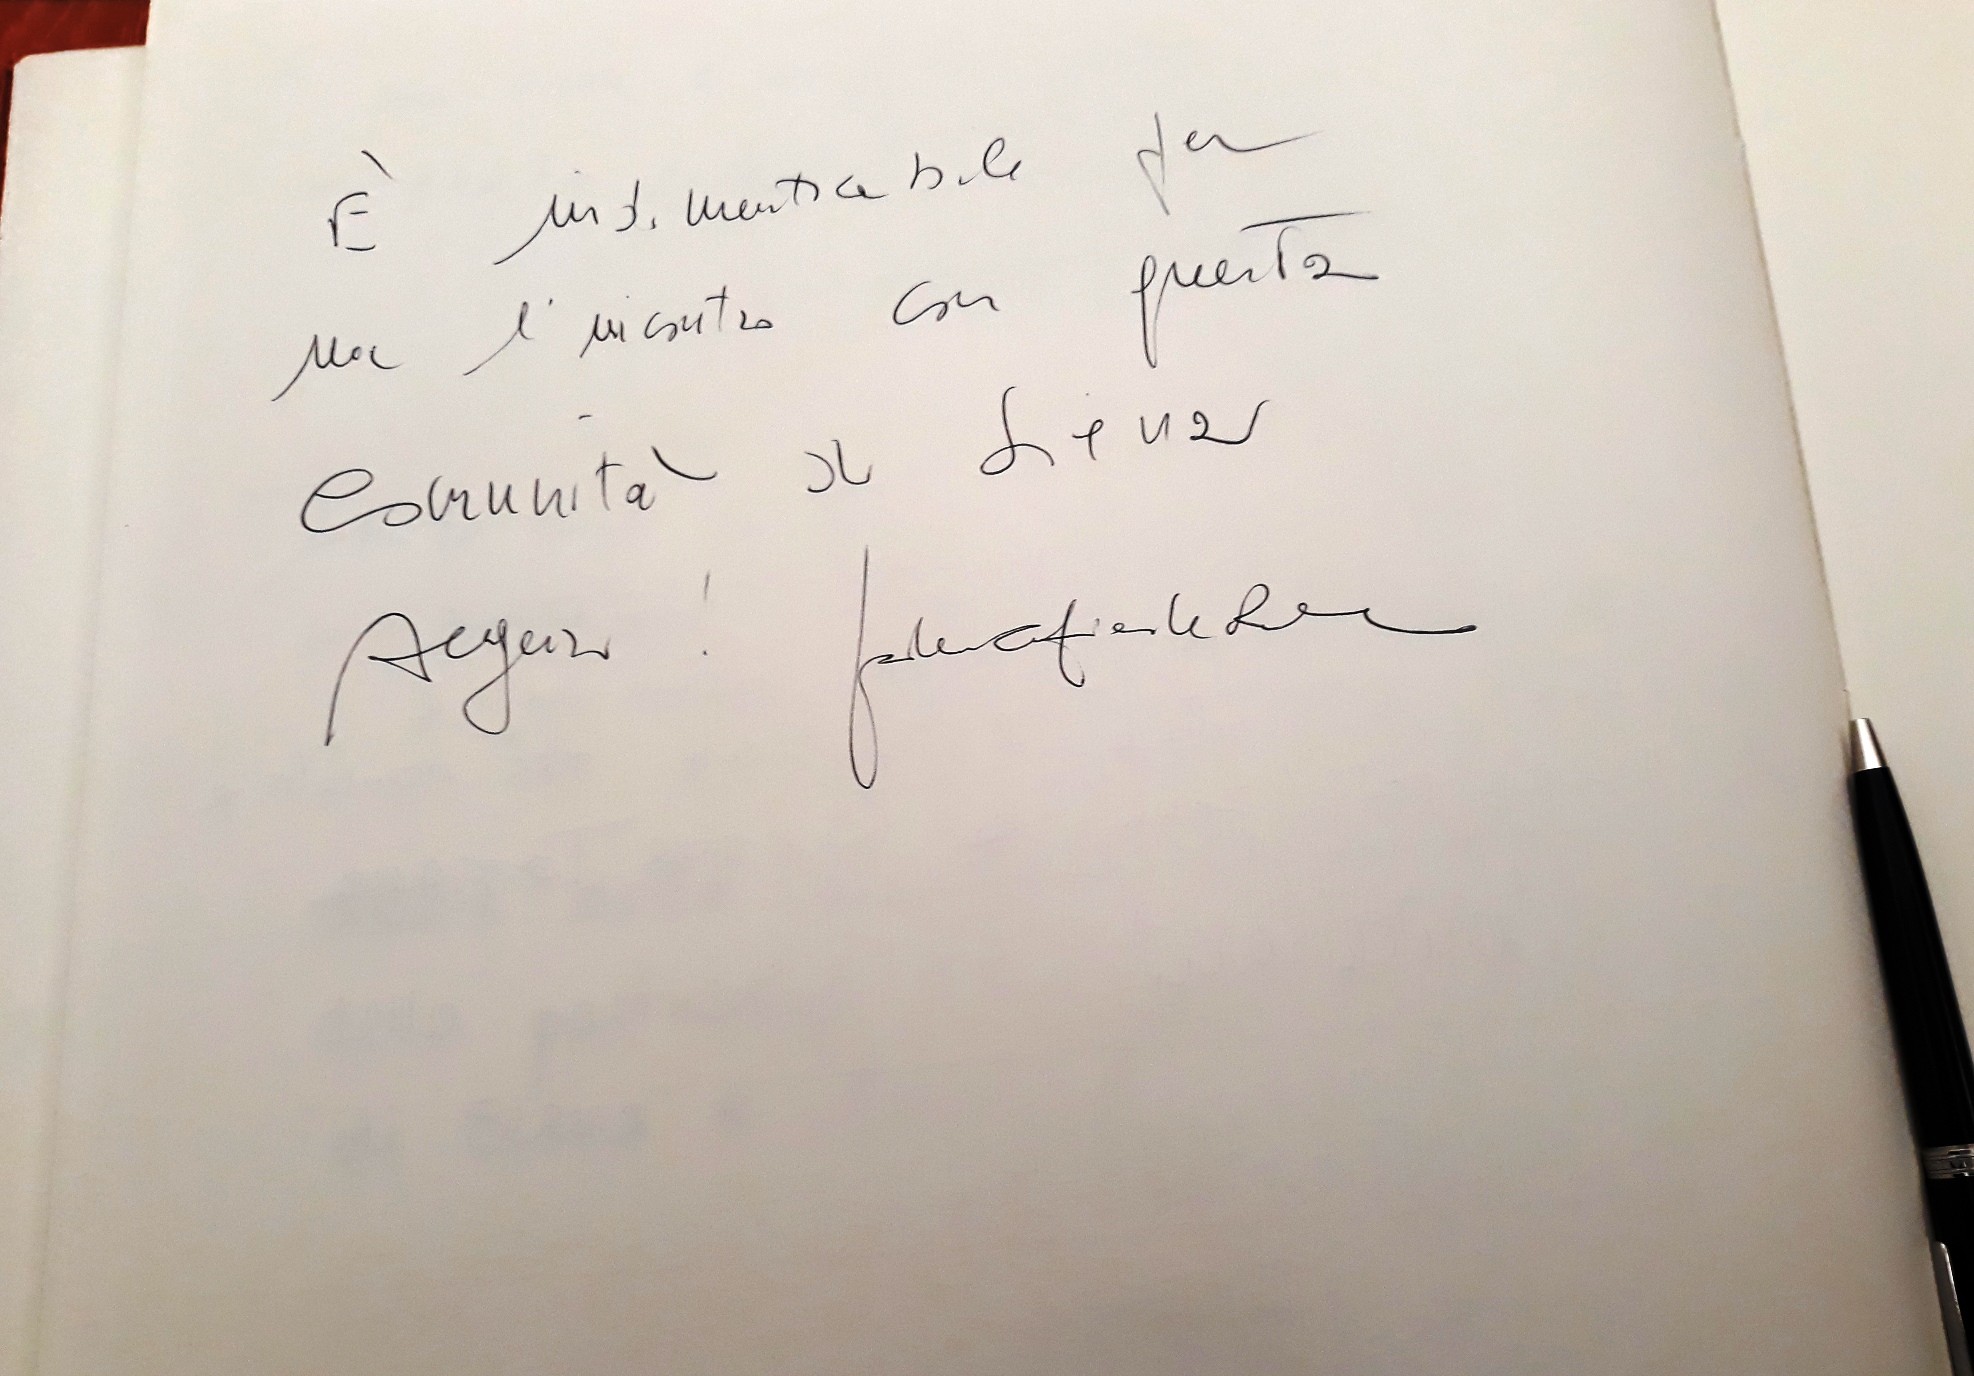 È indimenticabile per
me l'incontro con questa
Comunità di Siena
Auguri!